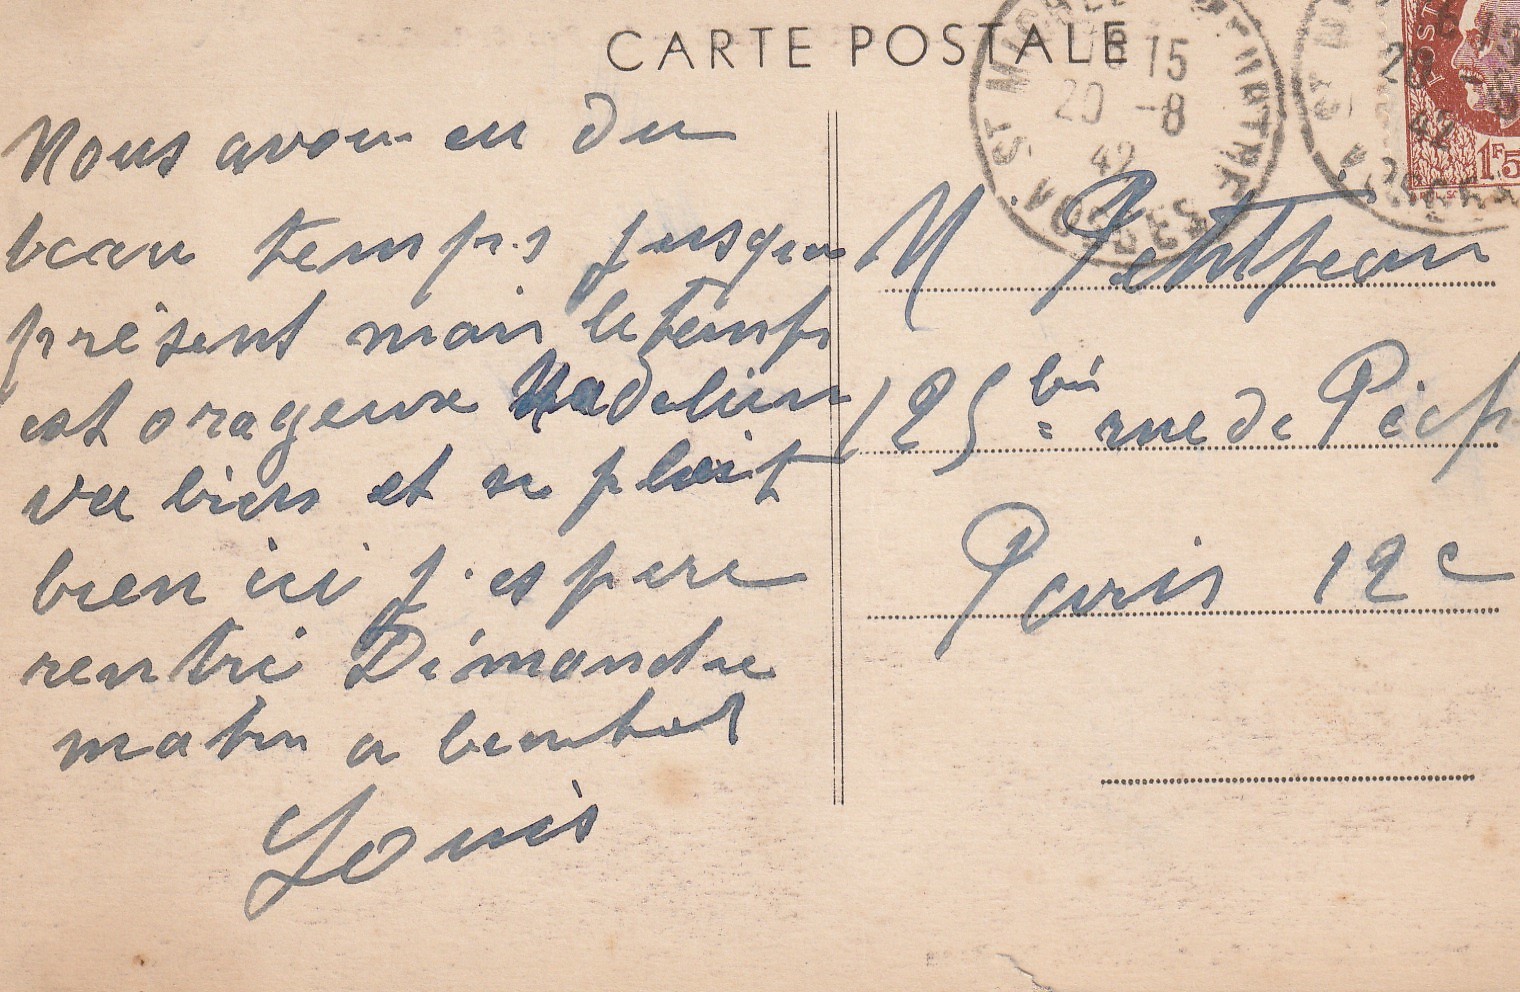 CARTE POSTALE
ST MICHEL S MEURTHE
VOSGES
18 15
20 -8
42
1F5
Nous avons eu du
beau temps jusqu'a
présent mais le temps
est orageux Madeleine
va bien et se plait
bien ici j'espere
rentré Dimanche
matin a bientot
Louis
M. Petitjean
125 bis rue de Picp
Paris 12e